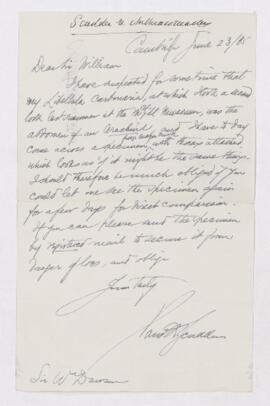 Scudder re Anthracomartus
Cambridge June 23/85
Dear Sir William
I have suspected for some time that
my Libellula carbonaria, at which I took a second
look last summer at the McGill Museum, was the
abdomen of an Arachnid and I have to day
come across a specimen, with thorax attached,
which looks as if it might be the same thing.
I should therefore be much obliged if you
could let me see the specimen again
for a few days for direct comparison.
If you can please send the specimen
by registered mail to secure it from
danger of loss, and oblige
Yours truly
Sam. H. Scudder
Sir Wm Dawson